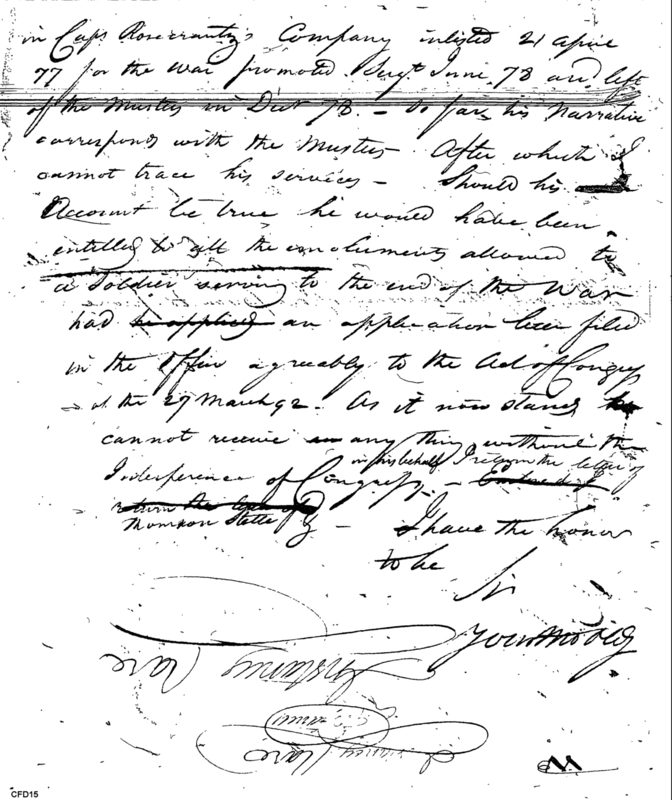 in Capt Rosecrantz's Company inlisted 21 april
77 for the war promoted Sergt June 78 and left
of the Musters in Decr 78. — So far his Narrative
corresponds with the Musters After which I
cannot trace his services — Should his
Account be true he would have been
entitled to all the emoluments allowed to
a Soldier serving to the end of the War
had he applied an application been filed
in the Office agreably to the Act of Congress
of the 27 March 92. As it now stands he
cannot receive any thing without the
in his behalf I return the letter of
Interference of Congress. —
return the letter of
Thomson
— I have the honor
to be
Sir
Your Mo Obt
CFD15